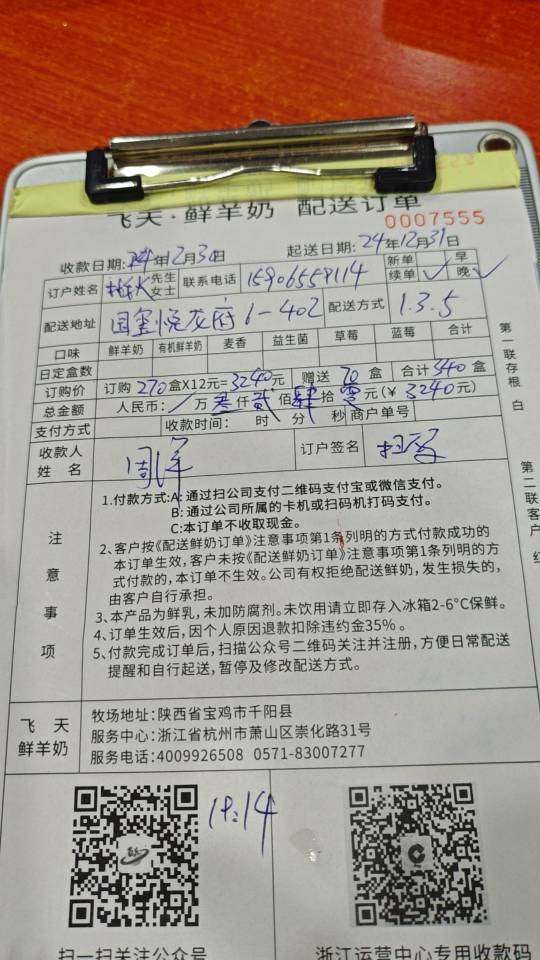 飞天·鲜羊奶 配送订单
0007555
收款日期:24年12月30日 起送日期:24年12月31日
订户姓名 先生 女士 联系电话 15906559114 新单 早 续单✓ 晚✓
配送地址 国玺悦龙府 6-402 配送方式 1.3.5
口味 鲜羊奶 有机鲜羊奶 麦香 益生菌 草莓 蓝莓 合计
日定盒数
订购价 订购270盒X12元=3240元 赠送70盒 合计340盒
总金额 人民币: / 万叁仟贰佰肆拾零元(¥3240元)
支付方式 收款时间: 时 分 秒 商户单号
收款人姓名 周洋 订户签名
第一联存根 白
第二联客户 红
注意事项
1.付款方式:A: 通过扫公司支付二维码支付宝或微信支付。
B: 通过公司所属的卡机或扫码机打码支付。
C:本订单不收取现金。
2、客户按《配送鲜奶订单》注意事项第1条列明的方式付款成功的
本订单生效，客户未按《配送鲜奶订单》注意事项第1条列明的方
式付款的，本订单不生效。公司有权拒绝配送鲜奶，发生损失的，
由客户自行承担。
3、本产品为鲜乳，未加防腐剂。未饮用请立即存入冰箱2-6°C保鲜。
4、订单生效后，因个人原因退款扣除违约金35%。
5、付款完成订单后，扫描公众号二维码关注并注册，方便日常配送
提醒和自行起送，暂停及修改配送方式。
飞天
鲜羊奶
牧场地址:陕西省宝鸡市千阳县
服务中心:浙江省杭州市萧山区崇化路31号
服务电话:4009926508 0571-83007277
19:14
扫一扫关注公众号
浙江运营中心专用收款码